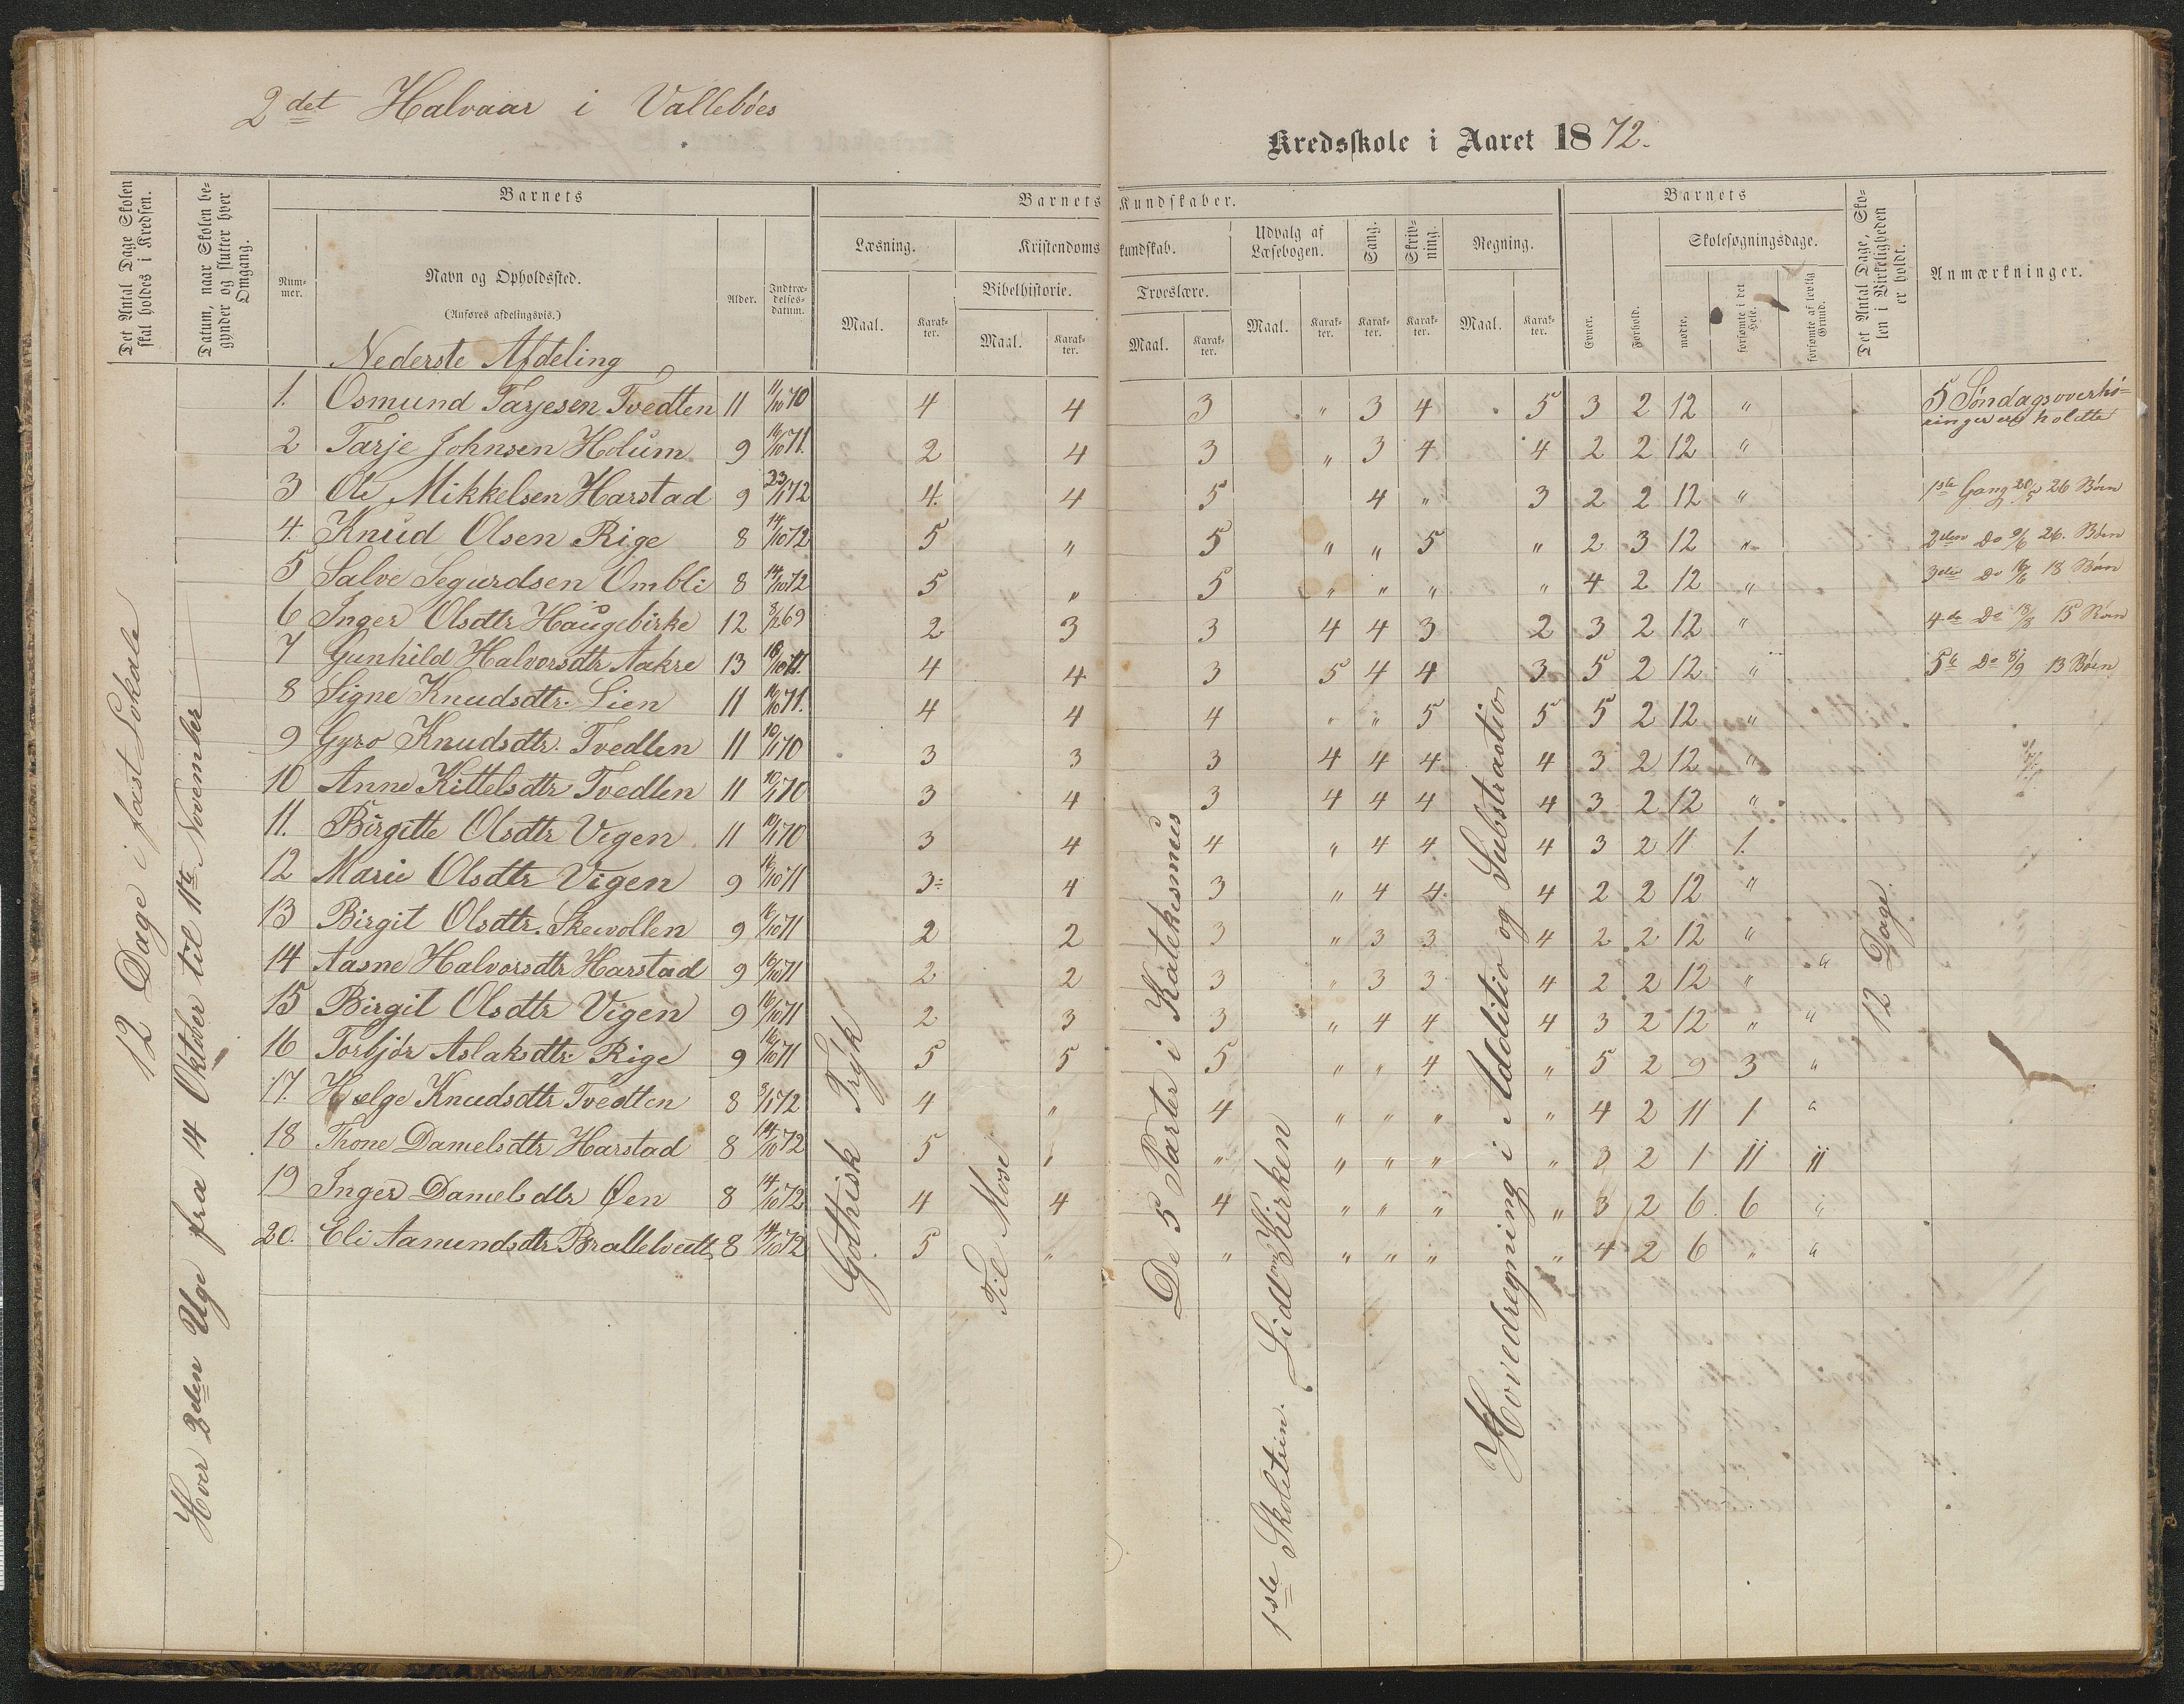 2det Halvaar i Vallebøes
Kredsskole i Aaret 1872.
Det Antal Dage Skolen skal holdes i Kredsen.
Datum, naar Skolen begynder og slutter hver Omgang.
Barnets
Nummer.
Navn og Opholdssted.
(Anføres afdelingsvis.)
Alder.
Indtrædelsesdatum.
Barnets Kundskaber.
Læsning.
Maal.
Karakter.
Kristendomskundskab.
Bibelhistorie.
Maal.
Karakter.
Troeslære.
Maal.
Karakter.
Udvalg af Læsebogen.
Maal.
Karakter.
Sang.
Karakter.
Skrivning.
Karakter.
Regning.
Maal.
Karakter.
Barnets
Evner.
Forhold.
Skolesøgningsdage.
mødte.
forsømte i det Hele.
forsømte af lovlig Grund.
Det Antal Dage, Skolen i Virkeligheden er holdt.
Anmærkninger.
Nederste Afdeling
1. Osmund Tarjesen Tvedten 11 11/10 70 4 4 3 " 3 4 5 3 2 12 "
2 Tarje Johnsen Holum 9 16/10 71. 2 4 3 " 3 4 4 2 2 12 "
3 Ole Mikkelsen Harstad 9 23/1 72 4. 4 5 4 " 3 2 2 12 "
4. Knud Olsen Rige 8 14/10 72 5 " 5 " " 5 " 2 3 12 "
5 Salve Segurdsen Ombli 8 14/10 72 5 " 5 " " " " 4 2 12 "
6 Inger Olsdtr Haugebirke 12 69 2 3 3 4 4 3 2 3 2 12 "
7 Gunhild Halvorsdtr Aakre 13 18/10 71. 4 4 3 5 4 4 3 5 2 12 "
8 Signe Knudsdtr. Lien 11 16/10 71. 4 4 4 " " 5 5 5 2 12 "
9 Gyro Knudsdtr. Tvedten 11 10/1 70 3 3 3 4 4 4 4 3 2 12 "
10 Anne Kittelsdtr Tvedten 11 10/1 70 3 4 3 4 4 4 4 3 2 12 "
11. Birgitte Olsdtr Vigen 11 10/1 70 3 4 4 " 4 4 4 3 2 11 1
12 Marie Olsdtr Vigen 9 16/10 71 3 4 3 " 4 4 4 2 2 12 "
13 Birgit Olsdtr. Skevollen 9 16/10 71 2 2 3 " 3 3 4 2 2 12 "
14 Aasne Halvorsdtr Harstad 9 16/10 71 2 2 3 " 3 3 4 2 2 12 " "
15 Birgit Olsdtr Vigen 9 16/10 71 2 3 3 " 4 4 4 3 2 12 " "
16 Torbjør Aslaksdtr. Rige 9 16/10 71 5 5 5 " " 4 " 5 2 9 3 "
17. Hælge Knudsdtr Tvedten 8 9/1 72 4 " 4 " " " " 4 2 11 1 "
18 Thone Danielsdtr Harstad 8 14/10 72 5 " " " " " " 3 2 1 11 11
19 Inger Danielsdtr Øen 8 14/10 72 4 4 4 " " " " 3 2 6 6 "
20. Eli Aamundsdtr Brottelveitt 8 14/10 72 5 " " " " " " 4 2 6 " "
12 Dage i fast Lokale
Hver 2den Uge fra 14 Oktober til 11te November
Gothisk Tryk
Til Mose
De 5 Parter i Katekesmus
1ste Skoletrin. Lidt om Kirken
Hovedregning i Additio og Substractio
12 Dage
5 Søndagsoverhøringer er holdte
1ste Gang 20/5 26 Børn
2den Do 9/6 26. Børn
3die Do 16/6 18 Børn
4de Do 18/8 15 Børn
5te Do 8/9 13 Børn